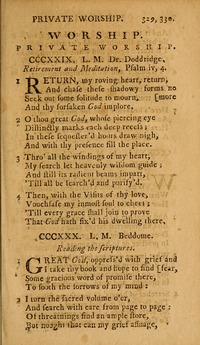 PRIVATE WORSHIP. 329, 330.
WORSHIP.
PRIVATE WORSHIP.
CCCXXIX. L. M. Dr. Doddridge.
Retirement and Meditation, Psalm iv, 4.
1 RETURN, my roving heart, return,
And chase these shadowy forms no
Seek out some solitude to mourn, [more
And thy forsaken God implore.
2 O thou great God, whose piercing eye
Distinctly marks each deep recess;
In these sequester'd hours draw nigh,
And with thy presence fill the place.
3 Thro' all the windings of my heart,
My search let heavenly wisdom guide;
And still its radiant beams impart,
'Till all be search'd and purify'd.
4 Then, with the visits of thy love,
Vouchsafe my inmost soul to cheer;
'Till every grace shall join to prove
That God hath fix'd his dwelling there.
CCCXXX. L. M. Beddome.
Reading the scriptures.
1 GREAT God, oppress'd with grief and
I take thy book and hope to find [fear,
Some gracious word of promise there,
To sooth the sorrows of my mind:
2 I turn the sacred volume o'er,
And search with care from page to page;
Of threatnings find an ample store,
But nought that can my grief assuage,